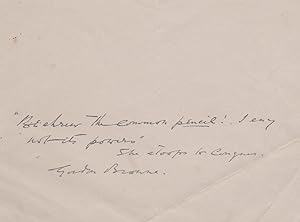 "Beshrew the common pencil! I envy
not its powers"
She stoops to Conquer.
Gordon Browne.